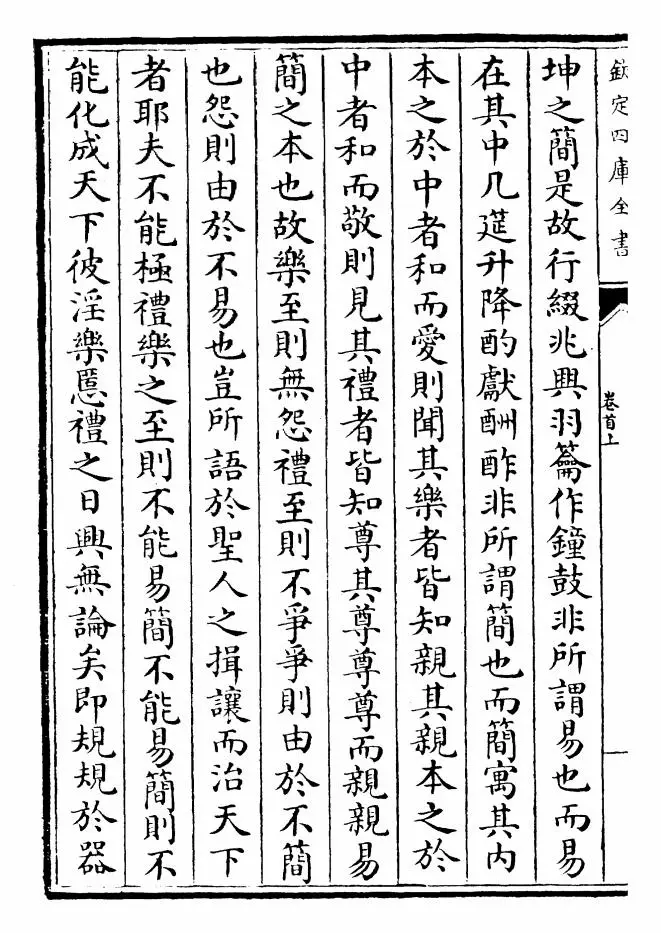 欽定四庫全書
卷首上
坤之簡是故行綴兆興羽籥作鐘鼓非所謂易也而易
在其中几筵升降酌獻酬酢非所謂簡也而簡寓其内
本之於中者和而愛則聞其樂者皆知親其親本之於
中者和而敬則見其禮者皆知尊其尊尊尊而親親易
簡之本也故樂至則無怨禮至則不爭爭則由於不簡
也怨則由於不易也豈所語於聖人之揖讓而治天下
者耶夫不能極禮樂之至則不能易簡不能易簡則不
能化成天下彼淫樂慝禮之日興無論矣即規規於器